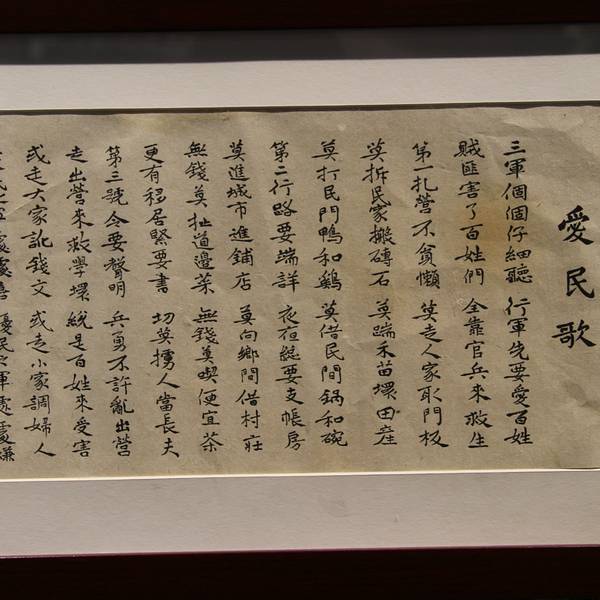 愛民歌
三軍個個仔細聽 行軍先要愛百姓
賊匪害了百姓們 全靠官兵來救生
第一扎營不貪懶 莫走人家取門板
莫拆民家搬磚石 莫踹禾苗壞田產
莫打民門鴨和鷄 莫借民間鍋和碗
第二行路要端詳 夜夜總要支帳房
莫進城市進鋪店 莫向鄉間借村莊
無錢莫扯道邊菜 無錢莫喫便宜茶
更有移居緊要書 切莫擄人當長夫
第三號令要聲明 兵勇不許亂出營
走出營來救學壞 總是百姓來受害
或走大家訛錢文 或走小家調婦人